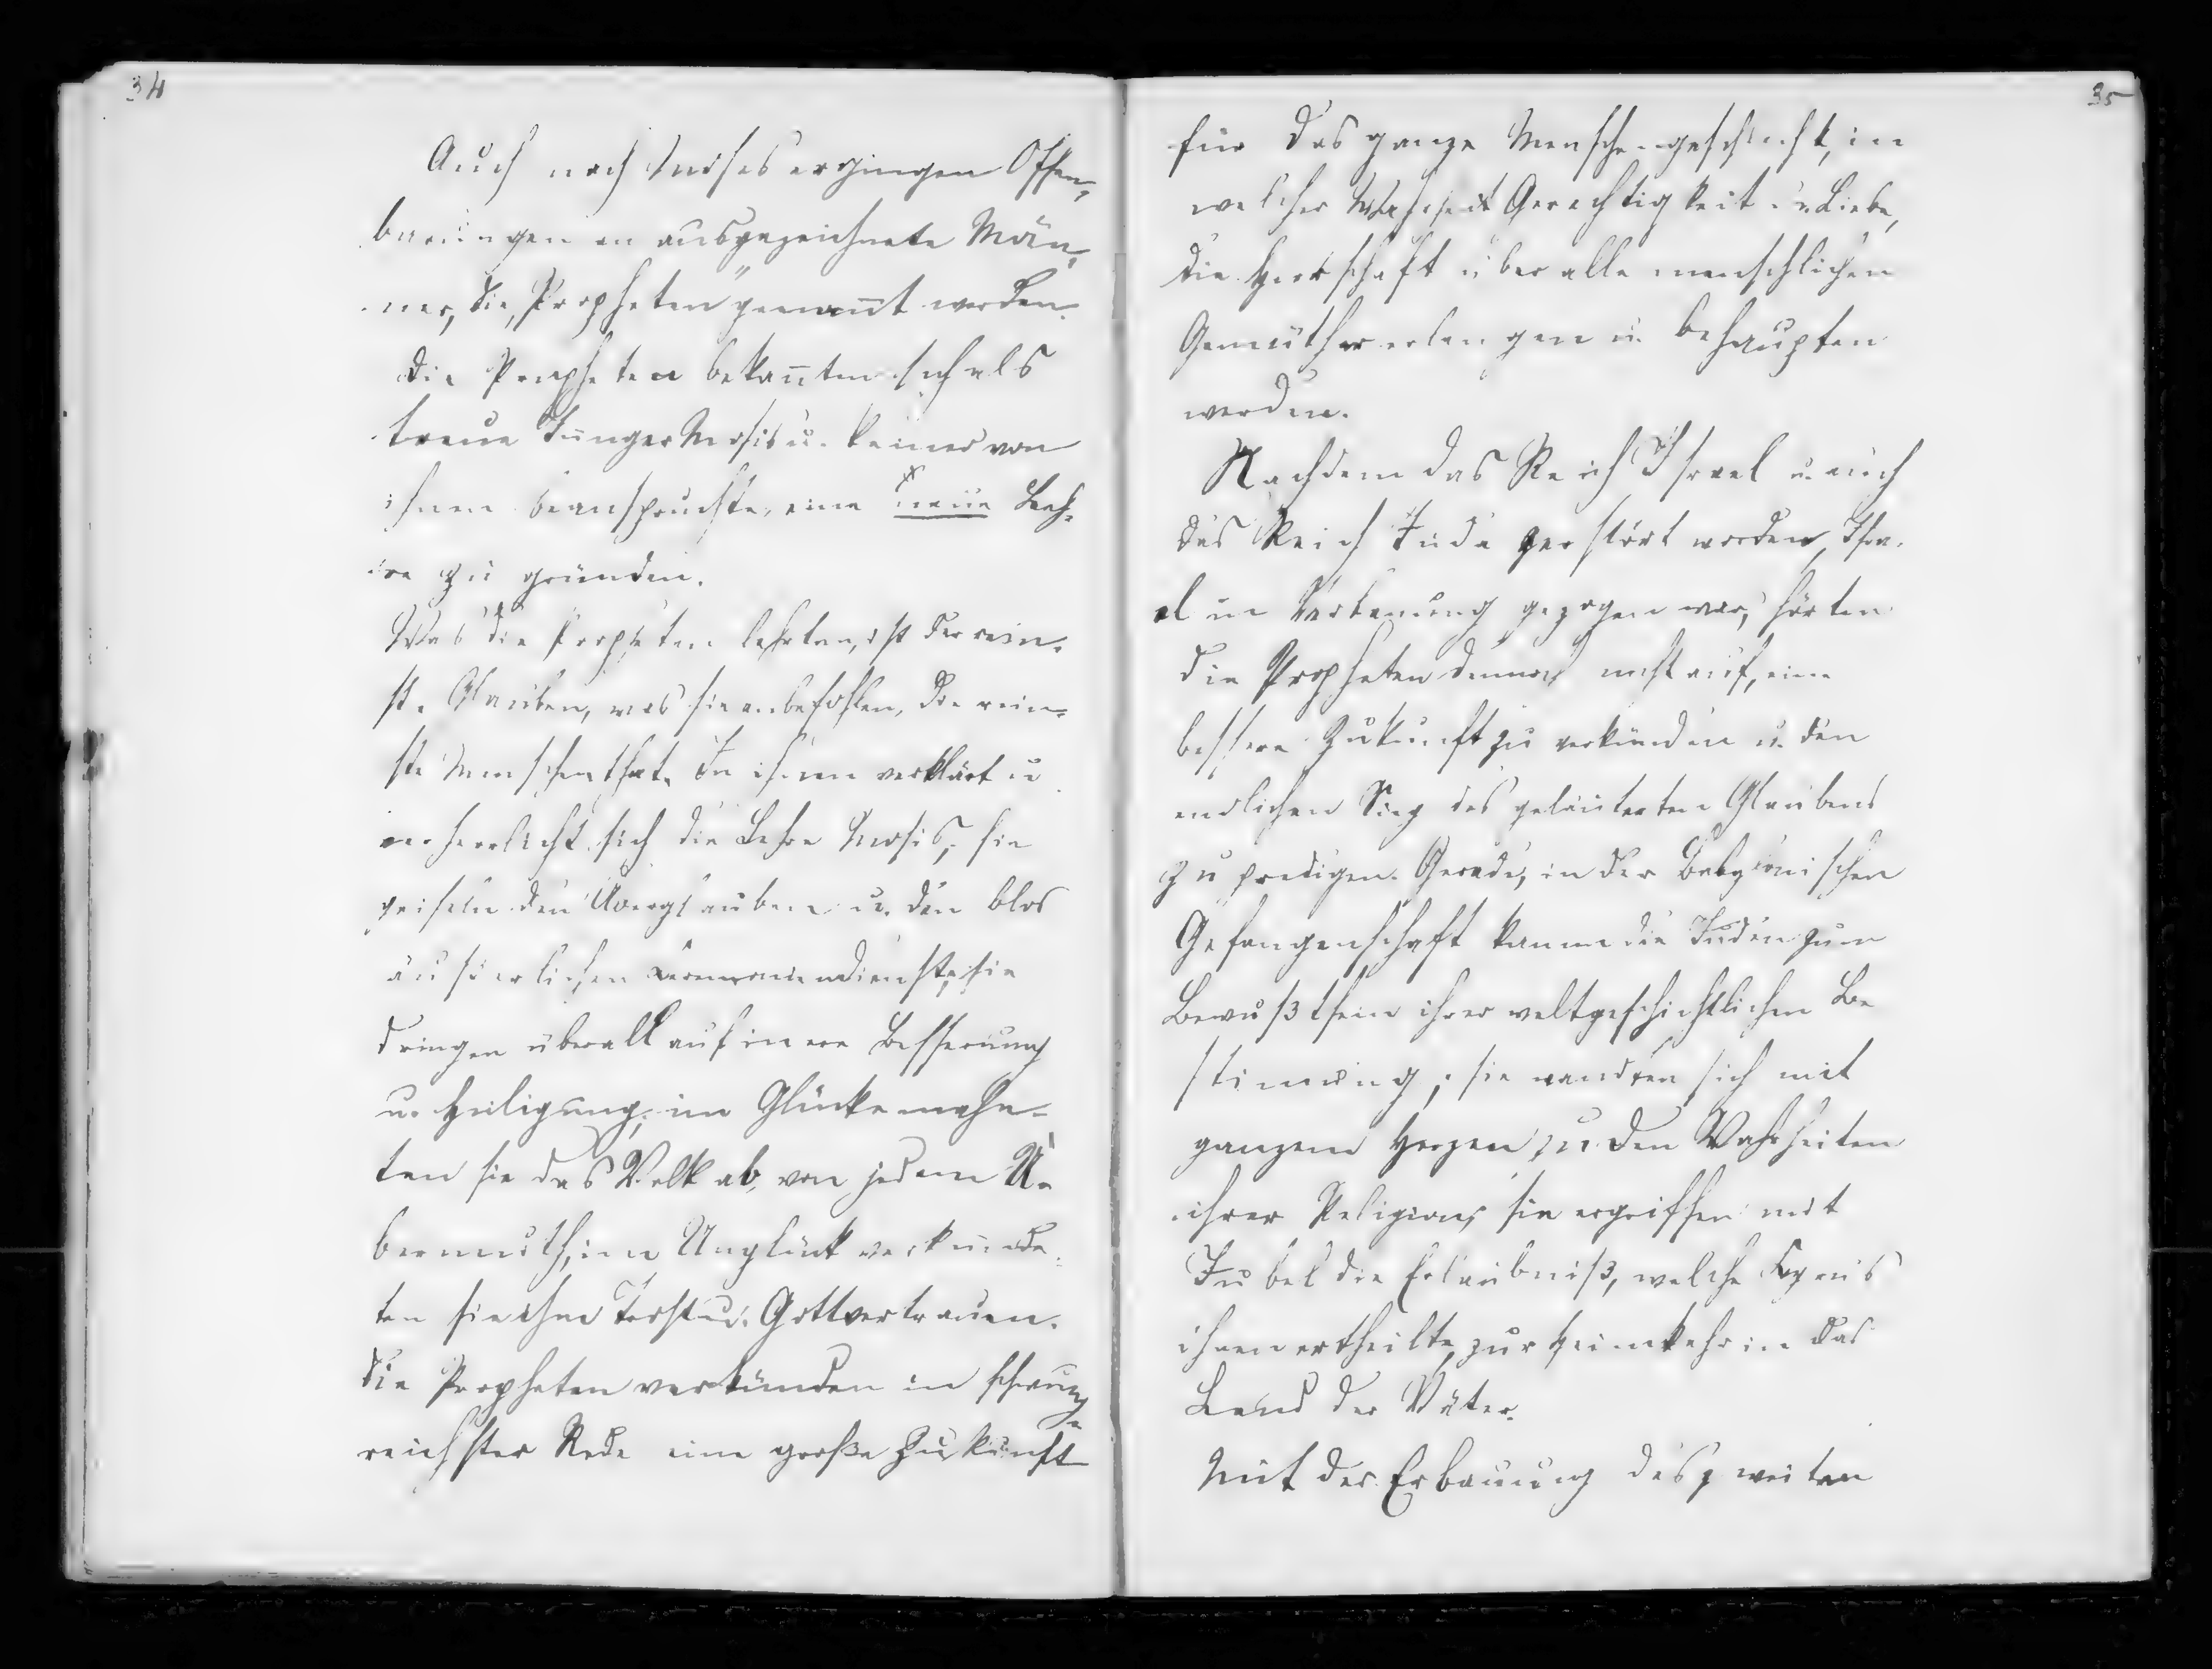 34
Auch nach Moses ergingen Offen-
barungen an ausgezeichnete Män-
ner, die „Propheten" genannt werden.
Die Propheten bekannten sich als
treue Jünger Mosis u. keiner von
ihnen beanspruchte, eine neue Leh-
re zu gründen.
Was die Propheten lehrten, ist der rein-
ste Glauben, was sie anbefohlen, die rein-
ste Menschenthat. In ihnen verklärt u
verherrlicht sich die Lehre Mosis, sie
geiseln den Aberglauben u. den blos
äußerlichen Ceremoniendienst, sie
dringen überall auf innere Besserung
u. Heiligung; im Glücke mahn-
ten sie das Volk ab, von jedem Ü-
bermuth, im Unglück verkünde-
ten sie ihm Trost u. Gottvertrauen.
Die Propheten verkünden in schwung-
reichster Rede eine große Zukunft
35
für das ganze Menschengeschlecht, in
welcher Wahrheit Gerechtigkeit u. Liebe,
die Herrschaft über alle menschlichen
Gemüther erlangen u. behaupten
werden.
Nachdem das Reich Israel u. auch
das Reich Juda zerstört worden, Isra-
el in Verbannung gezogen war, hörten
die Propheten dennoch nicht auf, eine
bessere Zukunft zu verkünden u. den
endlichen Sieg des geläuterten Glaubens
zu predigen. Gerade, in der Babylonischen
Gefangenschaft kamen die Juden zum
Bewußtsein ihrer weltgeschichtlichen Be
stimmung; sie wandten sich mit
ganzem Herzen zu den Wahrheiten
ihrer Religion, sie ergriffen mit
Jubel die Erlaubniß, welche Cyrus
ihnen ertheilte, zur Heimkehr in das
Land der Väter.
Mit der Erbauung des zweiten